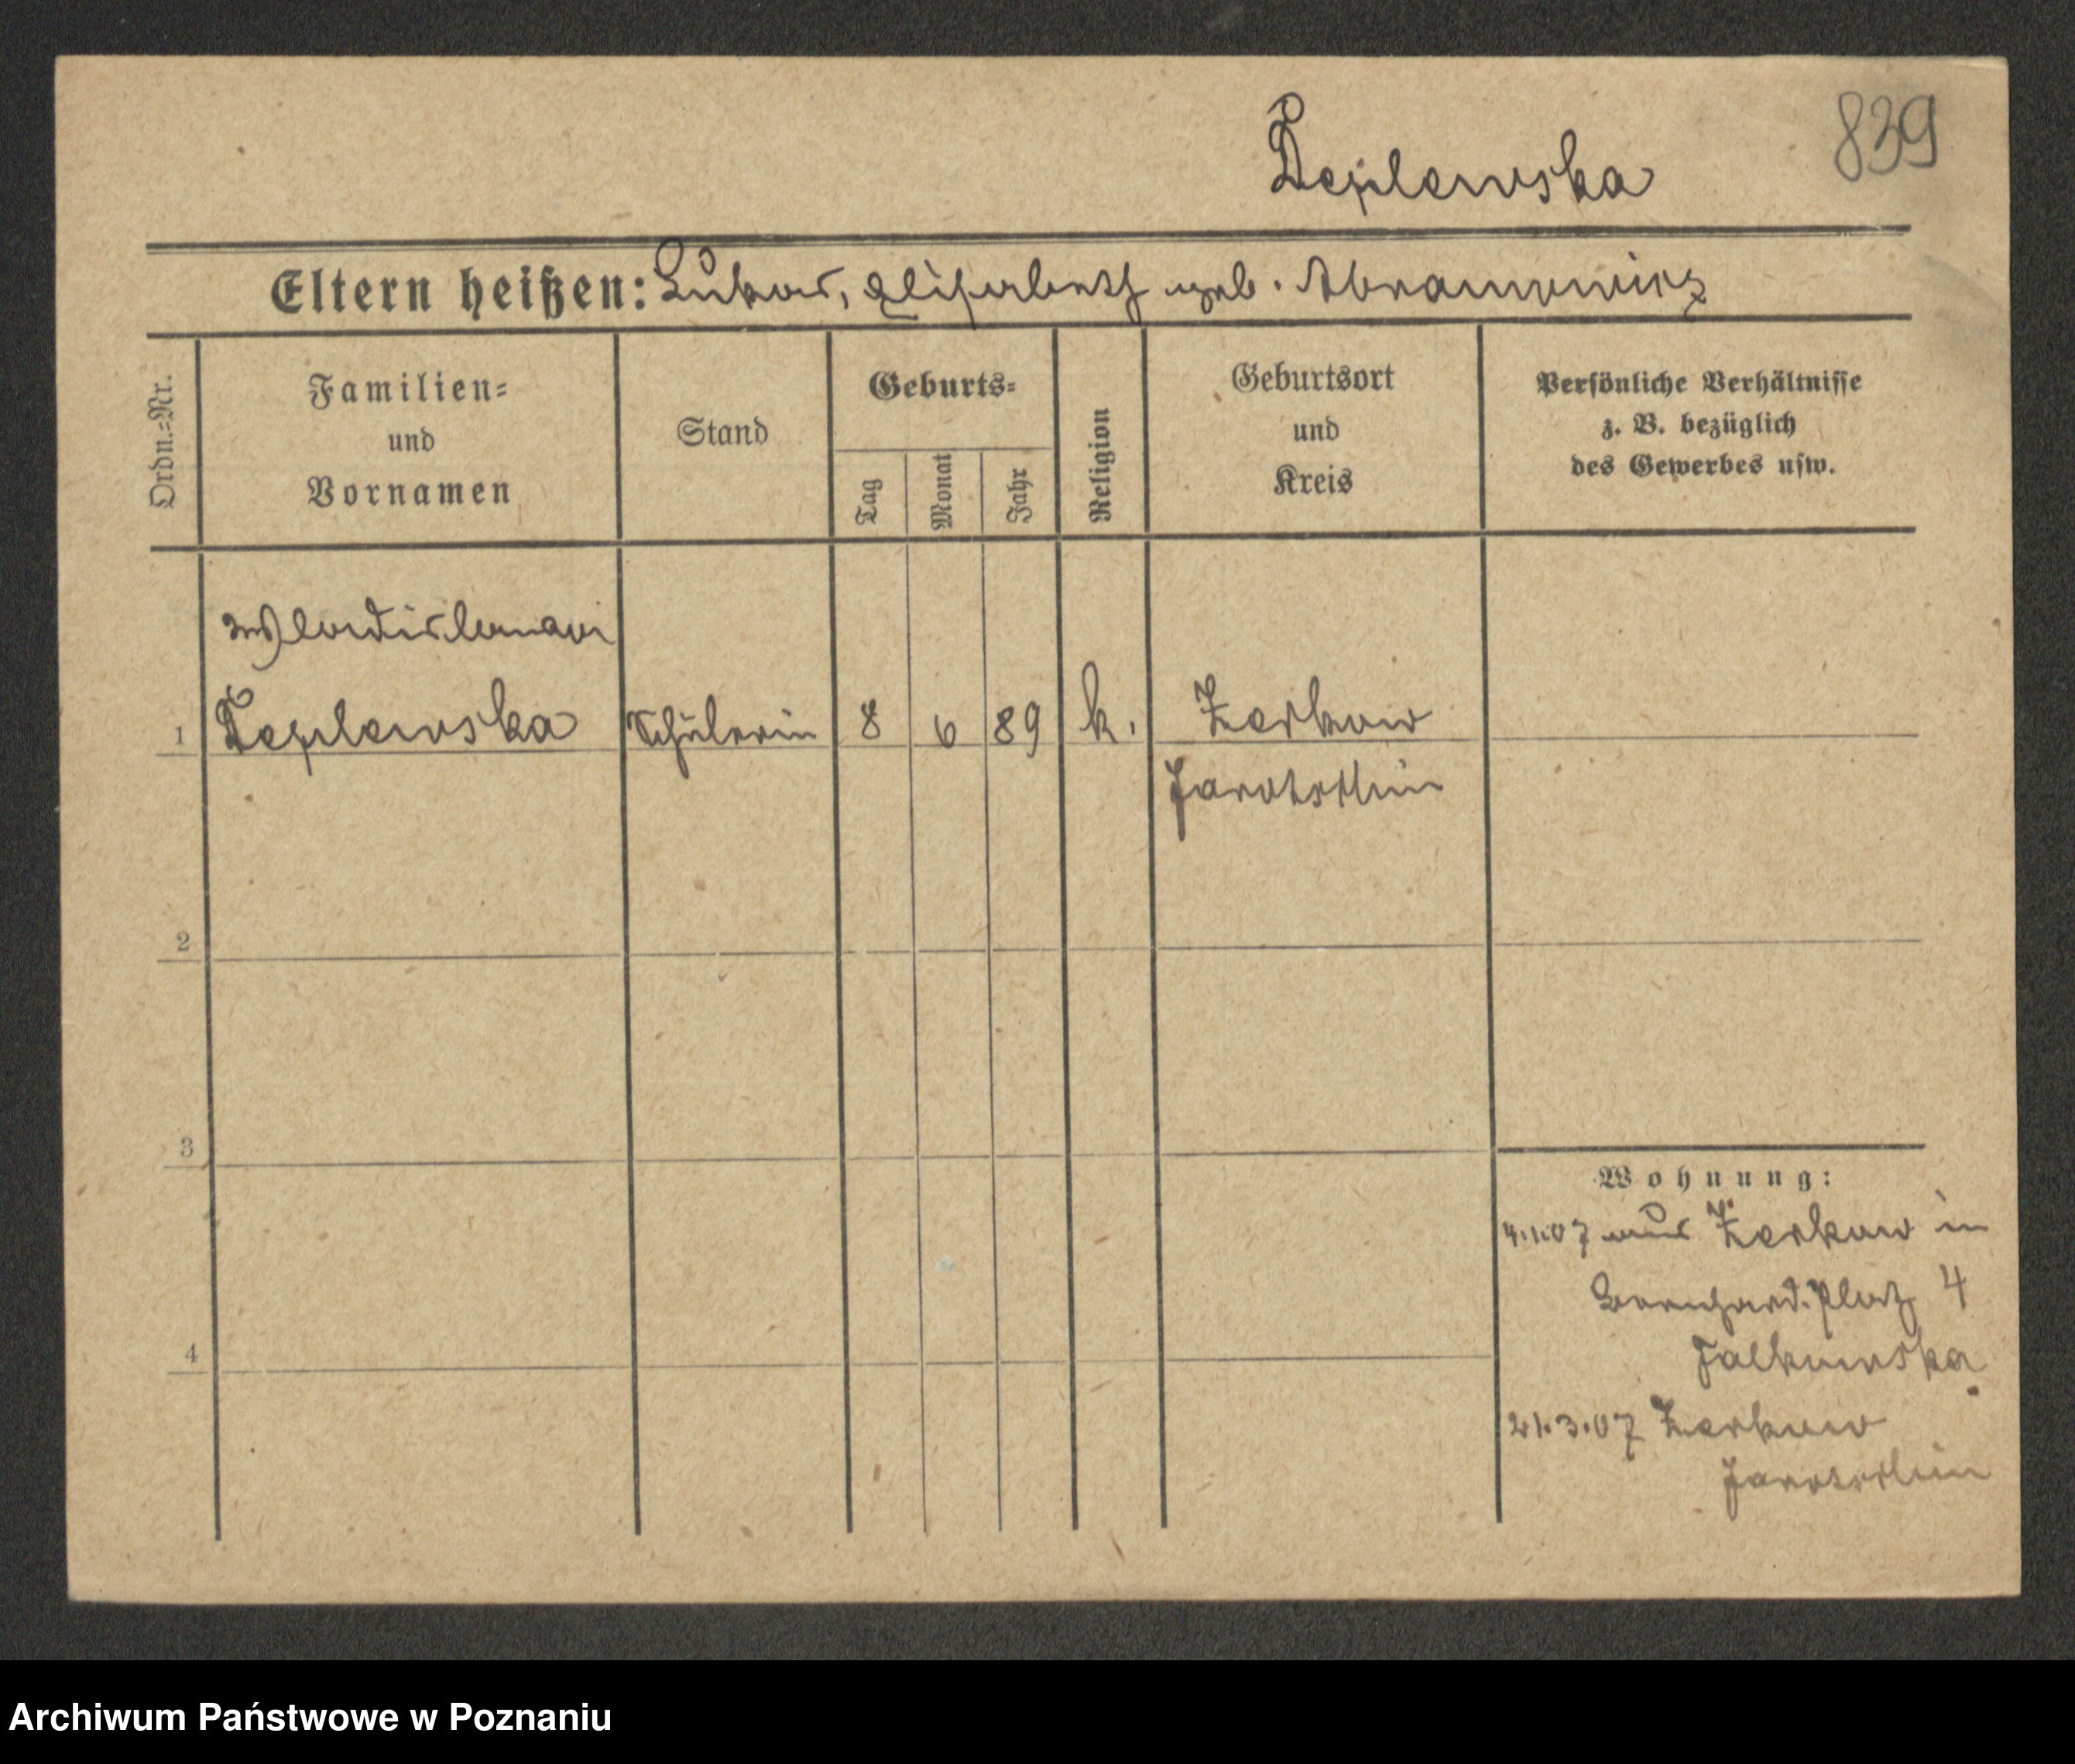 839
Teplewska
Eltern heißen: Lukas, Elisabeth geb. Abramowicz
Ordn.-Nr.
Familien-
und
Vornamen
Stand
Geburts-
Tag
Monat
Jahr
Religion
Geburtsort
und
Kreis
Persönliche Verhältnisse
z. B. bezüglich
des Gewerbes usw.
Wladislawa
1 Teplewska Schülerin 8 6 89 k. Zerkow
Jarotschin
2
3
4
Wohnung:
4.1.07 aus Zerkow in
Bernhard. Platz 4
Falkowska
21.3.07 Zerkow
Jarotschin
Archiwum Państwowe w Poznaniu